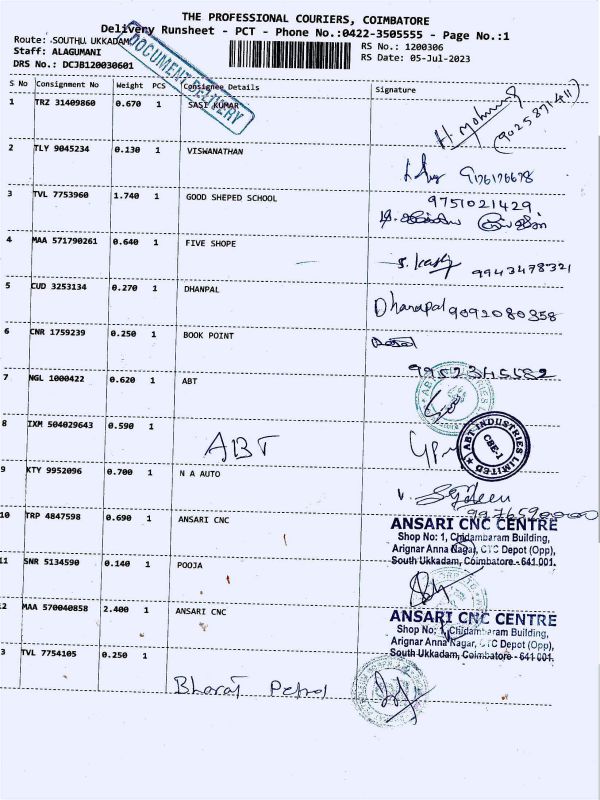 THE PROFESSIONAL COURIERS, COIMBATORE
Delivery Runsheet - PCT - Phone No.:0422-3505555 - Page No.:1
Route: SOUTHU UKKADAM
RS No.: 1200306
Staff: ALAGUMANI
RS Date: 05-Jul-2023
DRS No.: DCJB120030601
DOCUMENT DELIVERY
S No Consignment No Weight PCS Consignee Details Signature
1 TRZ 31409860 0.670 1 SASI KUMAR
H Mohan
(9025871411)
2 TLY 9045234 0.130 1 VISWANATHAN
9176176678
3 TVL 7753960 1.740 1 GOOD SHEPED SCHOOL 9751021429
4 MAA 571790261 0.640 1 FIVE SHOPE
9943478321
5 CUD 3253134 0.270 1 DHANPAL
Dhanapal 9092080358
6 CNR 1759239 0.250 1 BOOK POINT
7 NGL 1000422 0.620 1 ABT
8 IXM 504029643 0.590 1
ABT
ABT INDUSTRIES LIMITED
CBE-1
9 KTY 9952096 0.700 1 N A AUTO
10 TRP 4847598 0.690 1 ANSARI CNC
ANSARI CNC CENTRE
Shop No: 1, Chidambaram Building,
Arignar Anna Nagar, CTC Depot (Opp),
South Ukkadam, Coimbatore - 641 001.
11 SNR 5134590 0.140 1 POOJA
12 MAA 570040858 2.400 1 ANSARI CNC
ANSARI CNC CENTRE
Shop No: 1, Chidambaram Building,
Arignar Anna Nagar, CTC Depot (Opp),
South Ukkadam, Coimbatore - 641 001.
3 TVL 7754105 0.250 1
Bharat Petrol